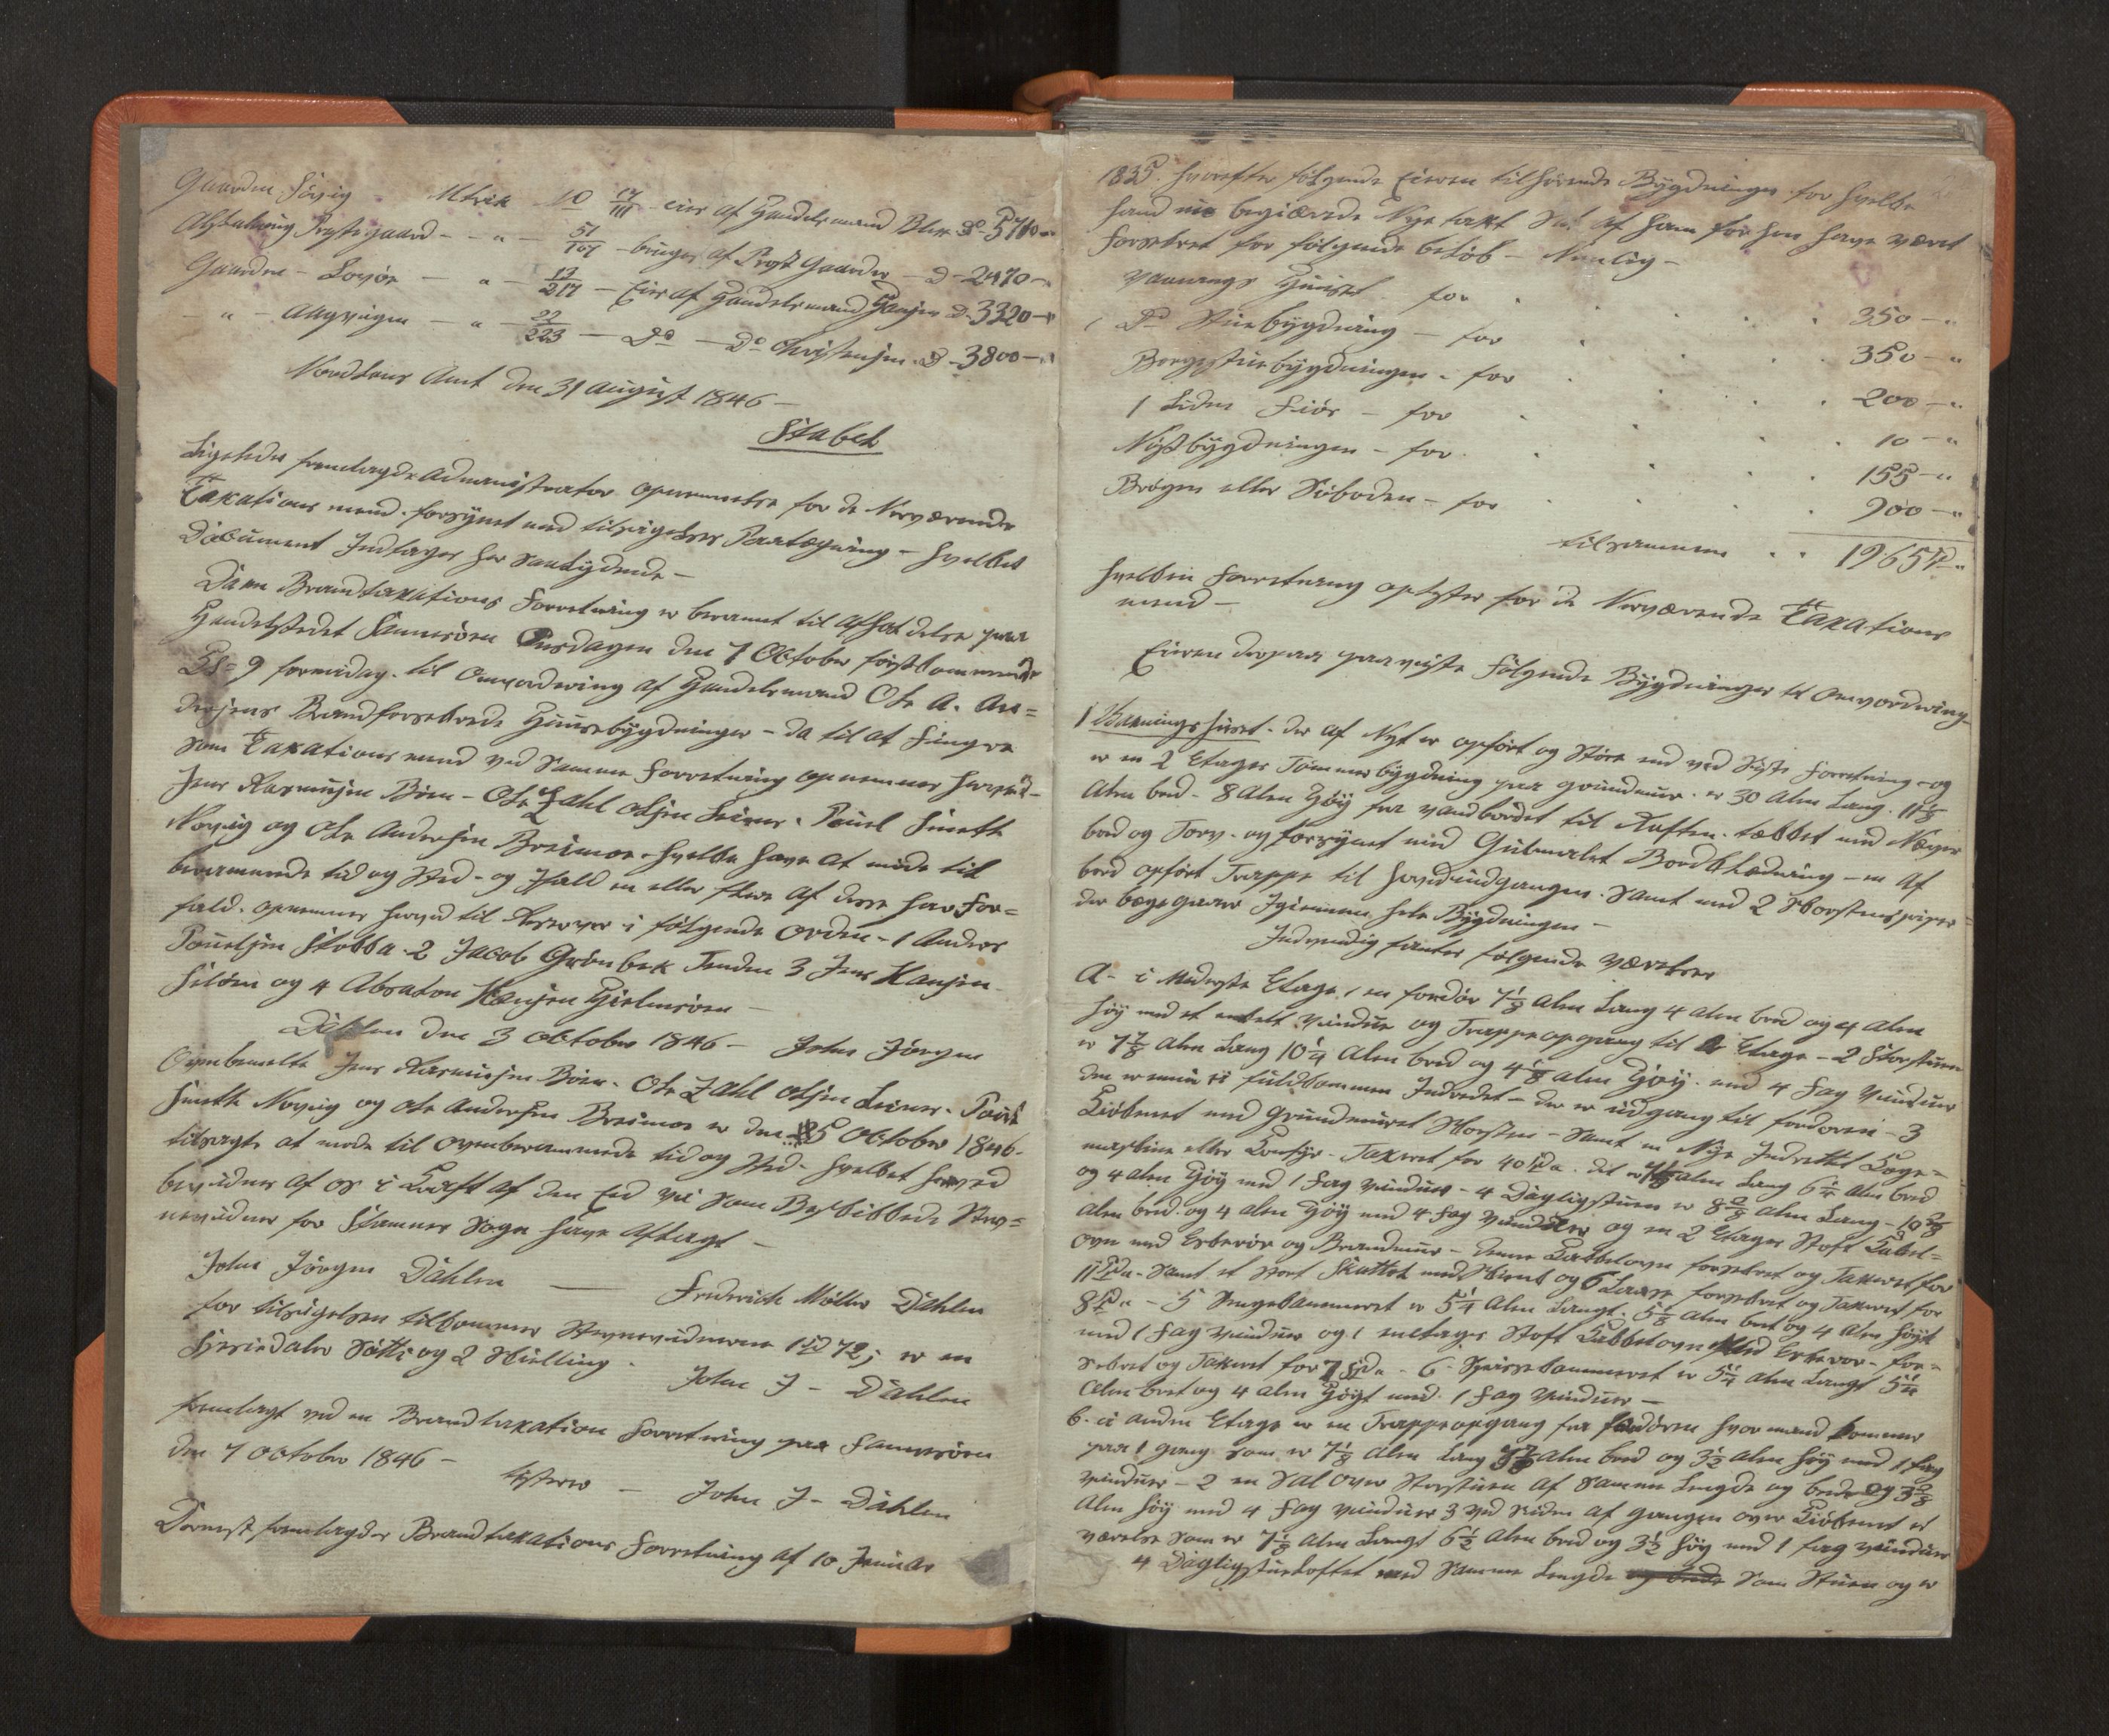 Gaarden Søvig - Mtrik No 14/111 - eier af Handelsmand Blix D 5710 - "
Alstahoug Præstegaard - - " - 51/107 - bruges af Prost Gaarder - D - 2470 - "
Gaarden - Lovøe - " - 13/214 - Eies af Handelsmand Hansen D - 3320 - "
- " - " - 22/223 - Do - Do Christensen D - 3800 - "
Nordlens Amt den 31 August 1846 -
Stabel
Ligeledes fremlagde Administrator opnævnelse for de Nerværende
Taxations mænd forsynet med tilsigelses Paategning - hvilket
Document Indtages her saalydende -
Da en Brandtaxations Forretning er berammet til Afholdelse paa
Handelstedet Sannesøen Onsdagen den 7 October førstkommende
Kl = 9 formidag til Omvordering af Handelsmand Ole A. An=
dersens Brandforsikrede Huusebygdninger - da til at fungere
som Taxations mænd ved Samme Forretning opnevnes herved -
Jens Rasmusen Böen - Ole Zahl Olsen Leines - Povel Smeth
Norvig og Ole Andersen Breimoe hvilke have at møde til
berammende tid og Sted - og Ifald en eller flere af disse har For=
fald - opnevnes herved til Reserver i følgende Orden - 1 Anders
Pouelsen Stokka 2 Jacob Grönbek Tenden 3 Jens Hansen
Silöen og 4 Absalon Hansen Hjelmsöen -
Dahlen den 3 October 1846 - John Jörgen
Ovenbemelte Jens Rasmusen Böen - Ole Zahl Olsen Leines - Povel
Smeth Norvig og Ole Andersen Breimoe er den 5 October 1846 -
tilsagte at møde til ovenberammede tid og Sted - hvilket herved
bevidnes af os i Kraft af den Eed vi Som Beskikkede Stev=
nevidner for Stamnes Sogn have Aflagt -
John Jörgen Dahlen - Frederich Möller Dahlen
for tilsigelsen tilkommer Stevnevidnerne 1 Spd 72 s er en
Speciedaler Sötti og 2 Skilling - John J - Dahlen
fremlagt ved en Brandtaxation Forretning paa Sannesöen
den 7 October 1846 - - John J - Dahlen
Dernest fremlagdes Brandtaxations Forretning af 10 Januar
1835 - hvorefter følgende Eieren tilhørende Bygdninger for hvilke
hand nu begiærede Nye taxt af ham før hen have været
Forsikret for følgende beløb - Nemlig -
Vaanings Huuset for . . . . 350 - "
1 Do Stuebygdning - for . . . . 350 - "
Borgestuebygdningen - for . . . 200 - "
1 Liden Fiös - for . . . . 10 - "
Nøstbygdningen - for . . . . 155 - "
Brögen eller Söboden - for . . . 900 - "
tilsammen . . 1965 Spd "
hvilken Forretning oplæstes for de Nerværende Taxations
mænd -
Eieren derpaa paaviste følgende Bygdninger til Omvordering
1 Vaaningshuuset - der af Nyt er opført og Större end ved Siste Forretning - og
er en 2 Etages Tömmerbygdning paa grundmuur er 30 Alen Lang 11 1/8
Alen bred - 8 Alen Høy fra Vandbordet til Raften tækket med Næver
bord og Torv - og forsynet med Guulmalet Bord Klædning - en Af
bord opført Trappe til Hovedindgangen Samt med 2 Skorsteenspiper
der begge gaaer Igiennem hele Bygdningen -
Indvendig fantes følgende Værelser
A - i Nederste Etage 1 en fordör 7 1/8 Alen Lang 4 Alen bred og 4 Alen
Høy med et enkelt Vindue og Trappeopgang til 2 Etage - 2 Storstuen
er 7 1/8 Alen Lang 10 1/4 Alen bred og 4 1/8 Alen Høy med 4 Fag Vinduer
den fuldkommen Indredet - der er udgang til fordøren - 3
Kiökenet med Grundmuret Skorsten - Samt en Nye Indrettet Koge=
maskine eller Komfyr - Taxeret for 40 Spd " det er 7 1/8 Alen Lang 6 1/4 Alen bred
og 4 Alen Høy med 1 Fag Vinduer - 4 Dagligstuen er 8 Alen Lang - 10
Alen bred og 4 Alen Høy med 4 Fag Vinduer og en 2 Etages Stoft Kakel=
Ovn med Esberör og Brandmuur - denne Kakkelovn forsikret og Taxeret for
11 Spd " - Samt et Stort Skattol med Skiænk og 6 Laase forsikret og Taxeret for
8 Spd " - 5 Sengekammeret er 5 1/4 Alen Langt 5 1/8 Alen bret og 4 Alen høyt
med 1 Fag Vinduer og 1 enetages Stoft Kakkelovn Med Esberör - for=
sikret og Taxeret for 7 Spd " - 6 - Spisekammeret er 5 1/4 Alen Langt 5 1/4
Alen bret og 4 Alen Høyt med 1 Fag Vinduer -
b - i Anden Etage er en Trappeopgang fra fordøren hvor mand kommer
paa 1 gang som er 7 1/8 Alen Lang Alen bred og 3 1/2 Alen høy med 1 fag
vinduer - 2 en Sal over Storstuen af Samme Lengde og brede og 3
Alen høy med 4 Fag vinduer 3 ved Siden af gangen over Kiökenet et
værelse som er 7 1/8 Alen Langt 6 1/2 Alen bred og 3 1/2 høy med 1 fag vinduer
4 Dagligstueloftet med Samme Lengde og brede Som Stuen og er